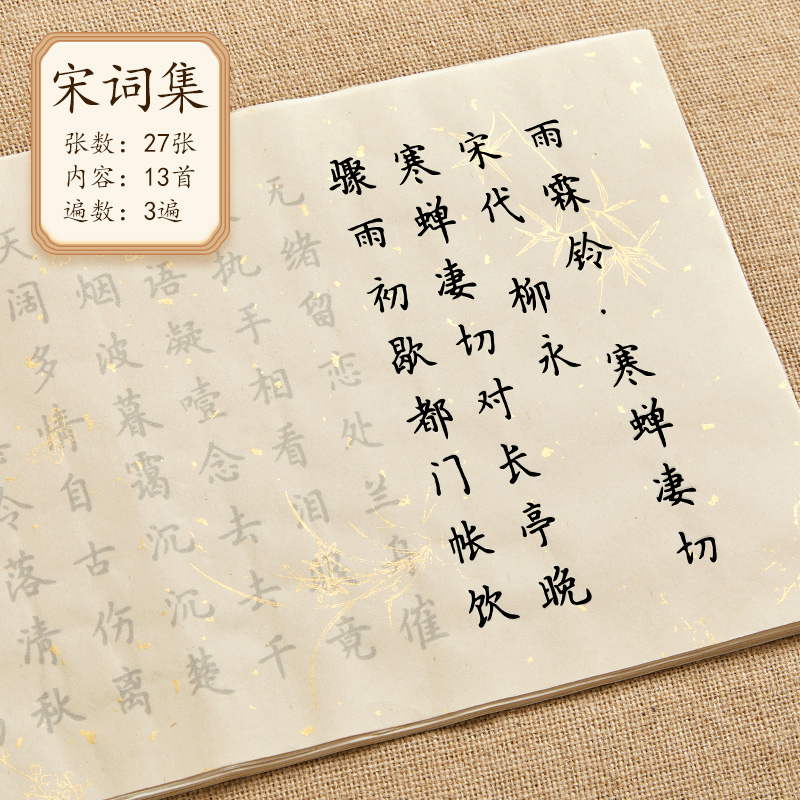 宋词集
张数：27张
内容：13首
遍数：3遍
雨霖铃·寒蝉凄切
宋代 柳永
寒蝉凄切对长亭晚
骤雨初歇都门帐饮
无绪留恋处兰舟催
执手相看泪眼竟
语凝噎念去去千
烟波暮霭沉沉楚
天阔多情自古伤离
冷落清秋